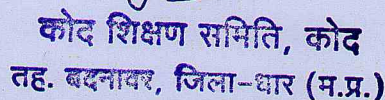 कोद शिक्षण समिति, कोद
तह. बदनावर, जिला-धार (म.प्र.)